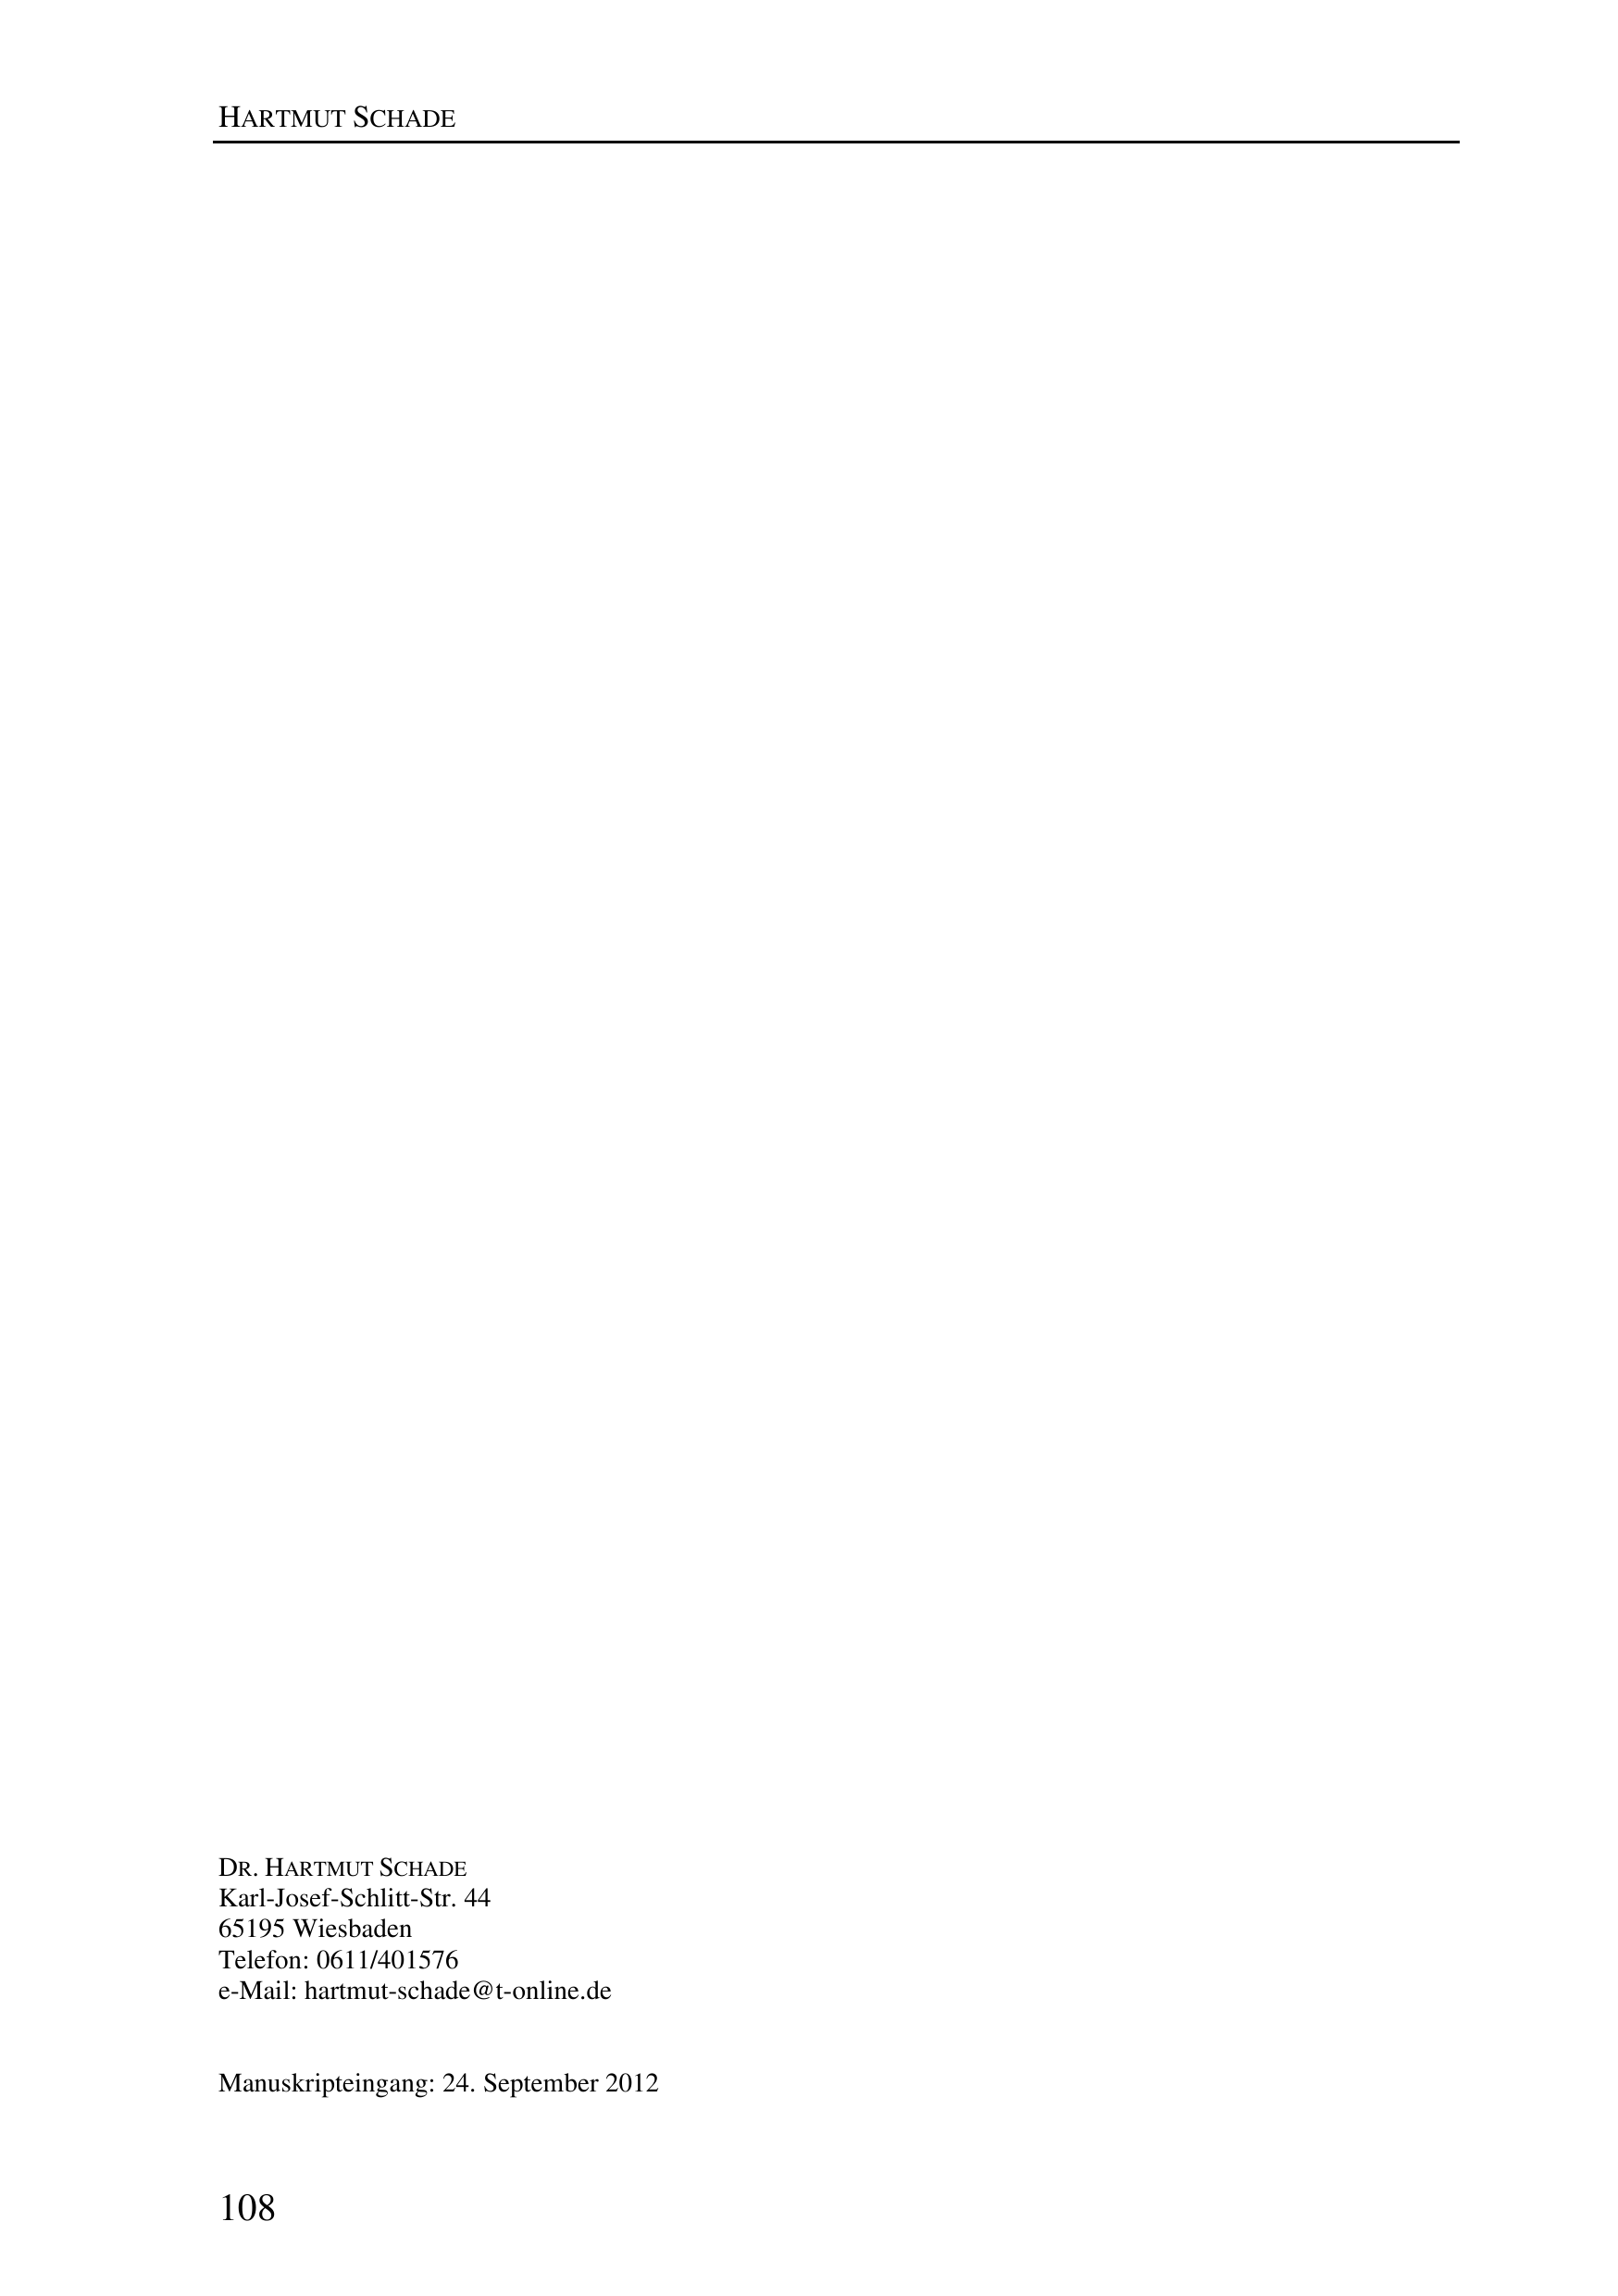 HARTMUT SCHADE
DR. HARTMUT SCHADE
Karl-Josef-Schlitt-Str. 44
65195 Wiesbaden
Telefon: 0611/401576
e-Mail: hartmut-schade@t-online.de
Manuskripteingang: 24. September 2012
108